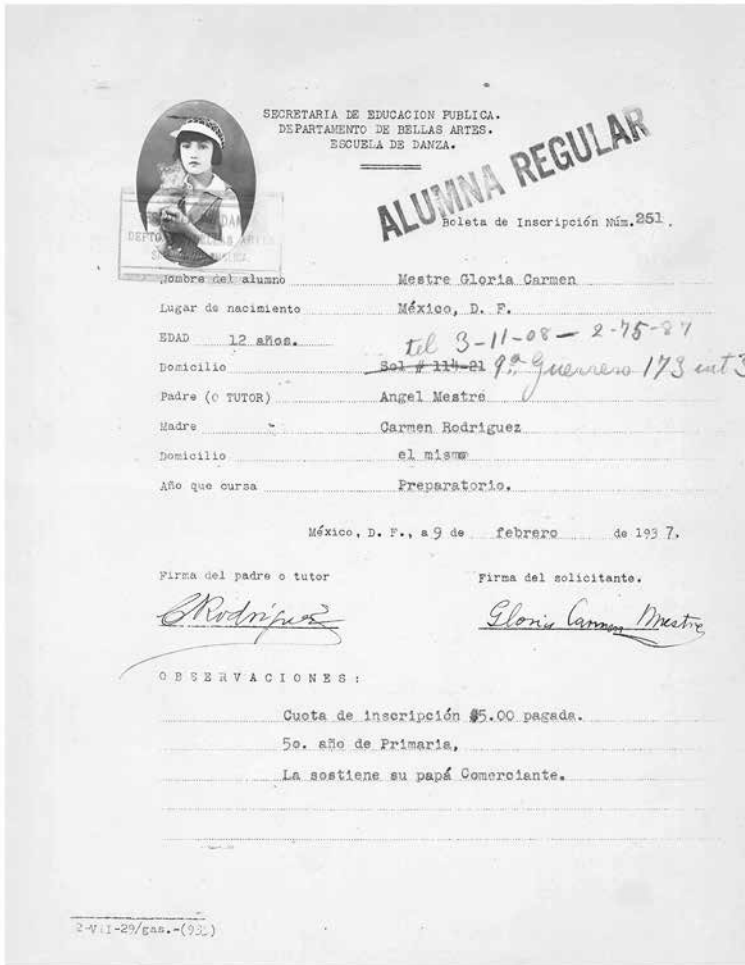 SECRETARIA DE EDUCACION PUBLICA.
DEPARTAMENTO DE BELLAS ARTES.
ESCUELA DE DANZA.
ALUMNA REGULAR
Boleta de Inscripción Núm. 251.
Nombre del alumno Mestre Gloria Carmen
Lugar de nacimiento México, D. F.
EDAD 12 años. tel 3-11-08 — 2-75-87
Domicilio Sol # 114-21 9ª Guerrero 173 int 3
Padre (o TUTOR) Angel Mestre
Madre Carmen Rodriguez
Domicilio el mismo
Año que cursa Preparatorio.
México, D. F., a 9 de febrero de 1937.
Firma del padre o tutor Firma del solicitante.
CRodríguez Gloria Carmen Mestre
OBSERVACIONES:
Cuota de inscripción $5.00 pagada.
5o. año de Primaria,
La sostiene su papá Comerciante.